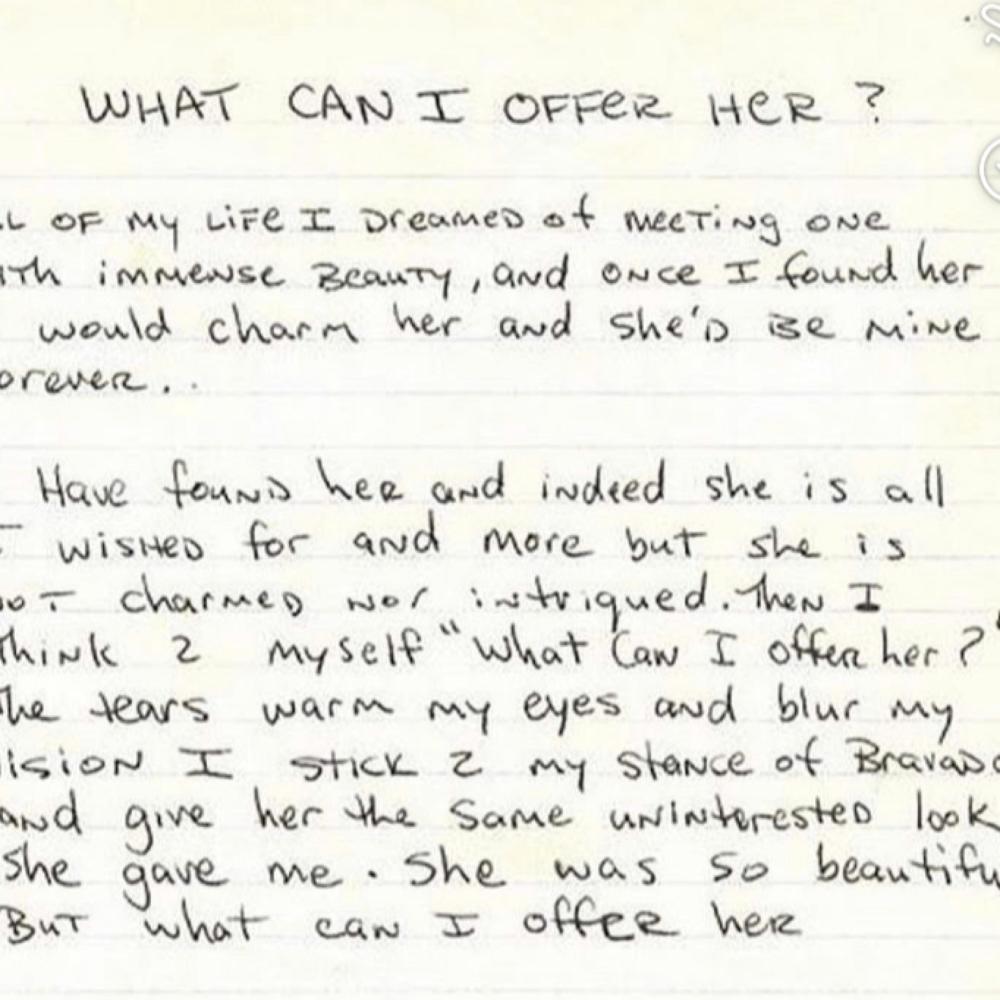 WHAT CAN I OFFER HER ?
LL OF MY LIFE I DREAMED of MEETING ONE
ITH immense BEAUTY, and ONCE I found her
would charm her and she'D BE MINE
orever . .
Have founD her and indeed she is all
I WISHED for and more but she is
OT charmed nor intriqued. Then I
Think 2 myself "What Can I offer her ?"
The tears warm my eyes and blur my
ision I stick 2 my stance of Bravado
and give her the same uninterested look
she gave me . She was so beautifu
BuT what can I offer her